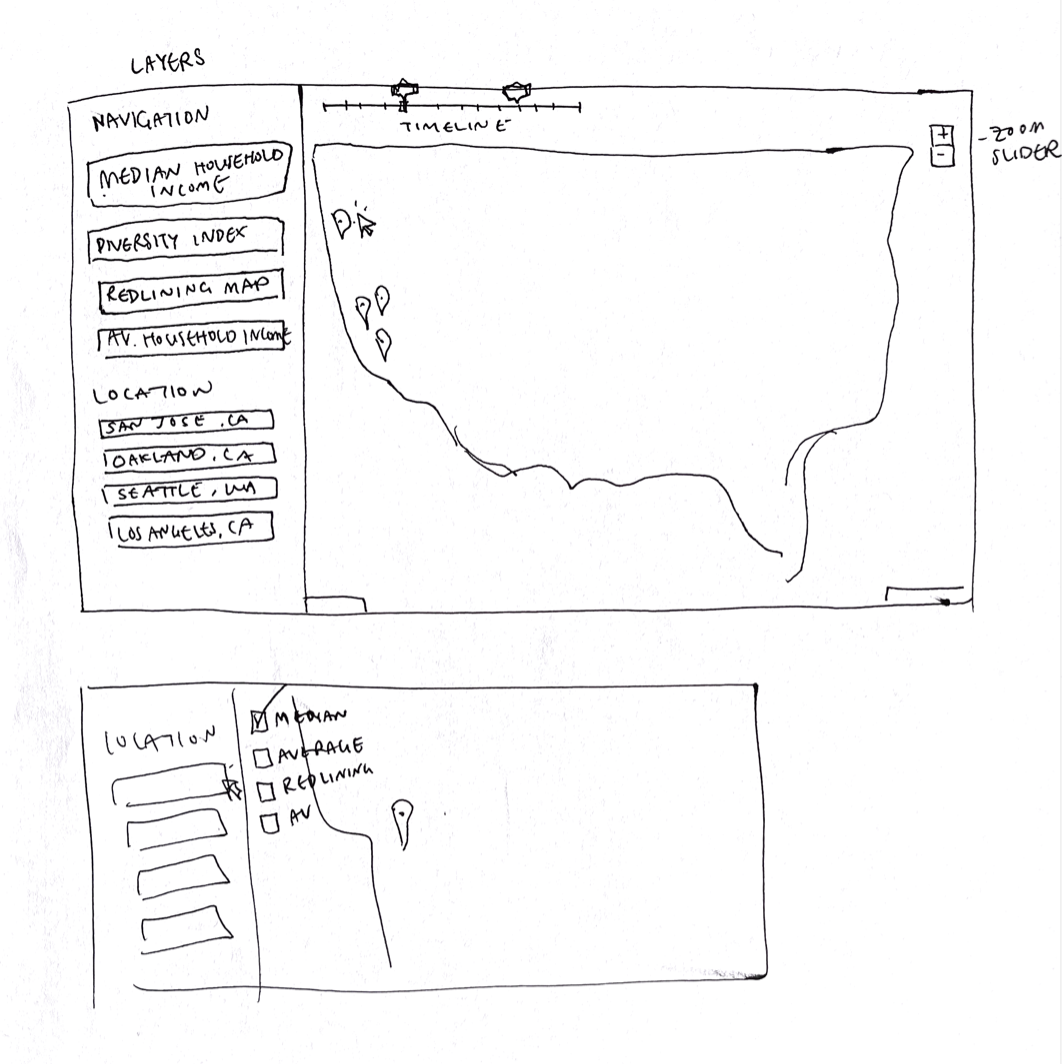 LAYERS
NAVIGATION
MEDIAN HOUSEHOLD
INCOME
DIVERSITY INDEX
REDLINING MAP
AV. HOUSEHOLD INCOME
LOCATION
SAN JOSE, CA
OAKLAND, CA
SEATTLE, WA
LOS ANGELES, CA
TIMELINE
+
-
- ZOOM
SLIDER
LOCATION
MEDIAN
AVERAGE
REDLINING
AV